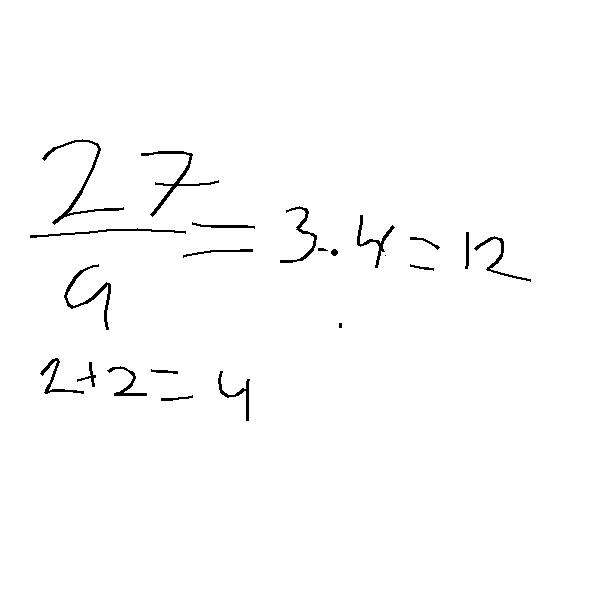 27/9 = 3 · 4 = 12
2+2=4